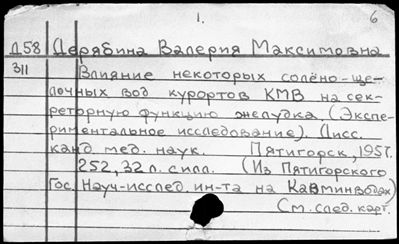 1. 6
Д58 Дерябина Валерия Максимовна
311 Влияние некоторых солёно-ще-
лочных вод курортов КМВ на сек-
реторную функцию желудка. (Экспе-
риментальное исследование). Дисс.
канд мед. наук. Пятигорск, 1957.
252, 32 л. с илл. (Из Пятигорского
Гос. Науч-исслед. ин-та на Кавминводах)
См. след. карт.